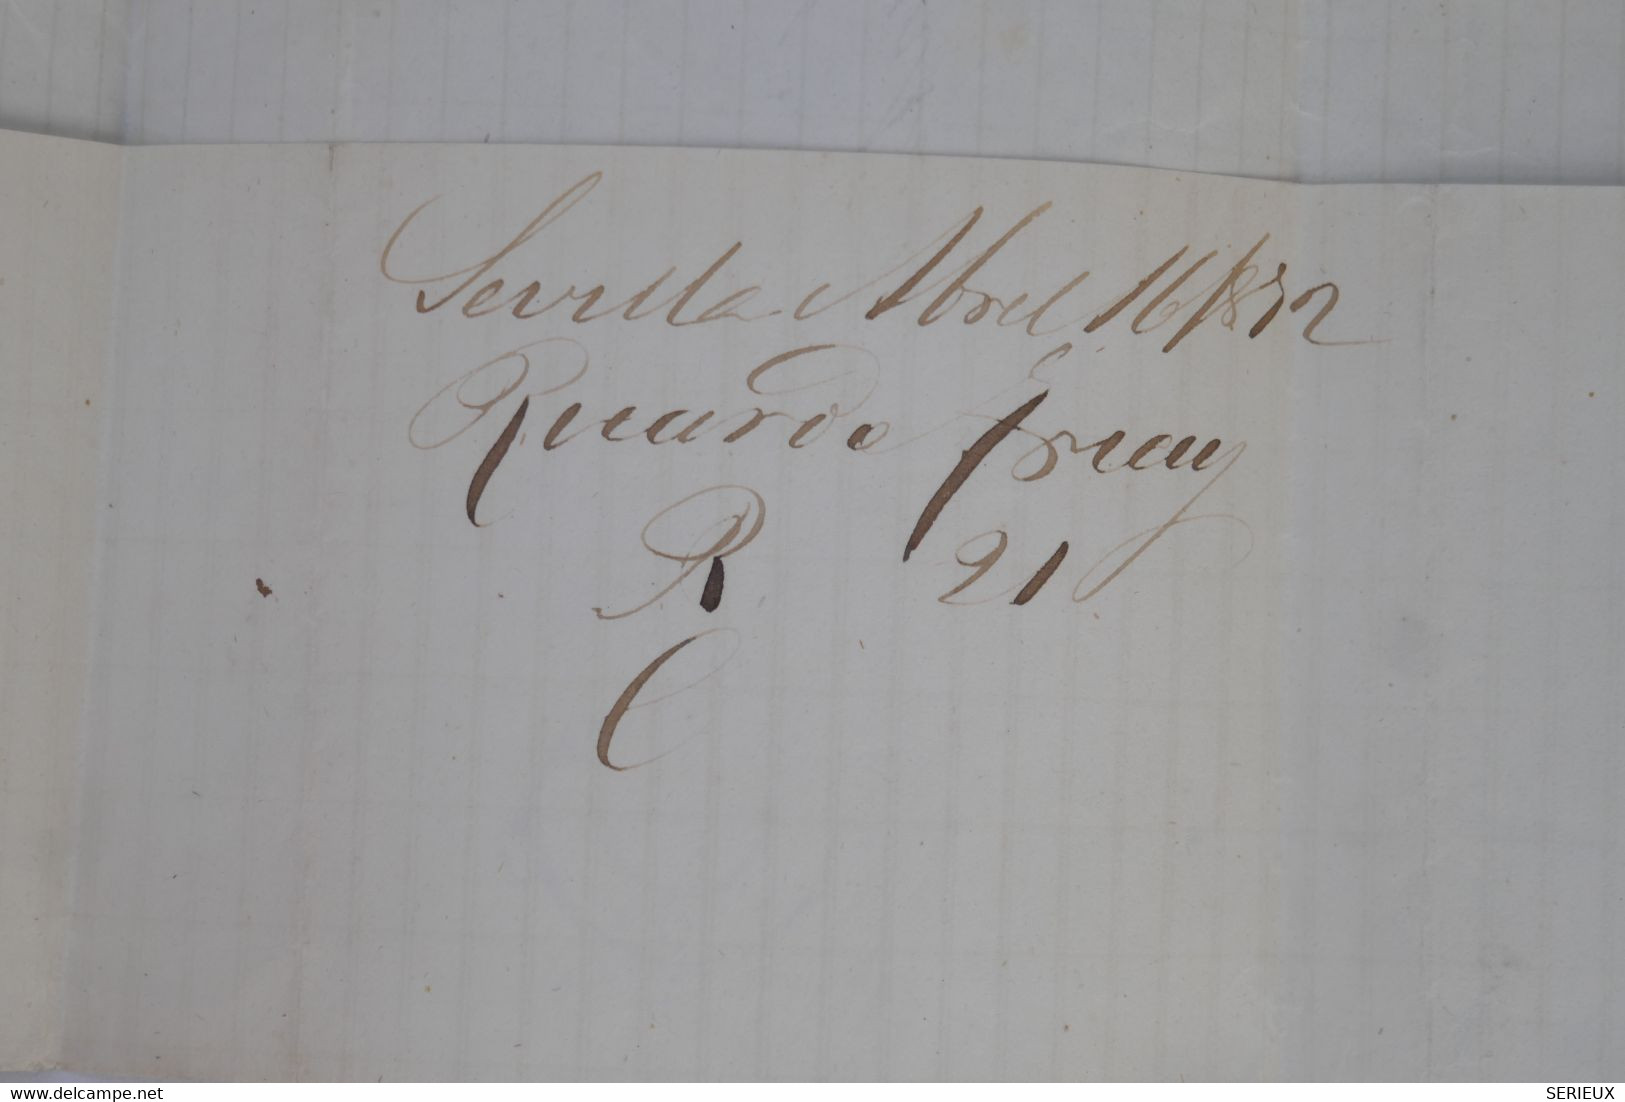 Sevilla Abril 16/872
Ricardo
R 21
C
www.delcampe.net
SERIEUX